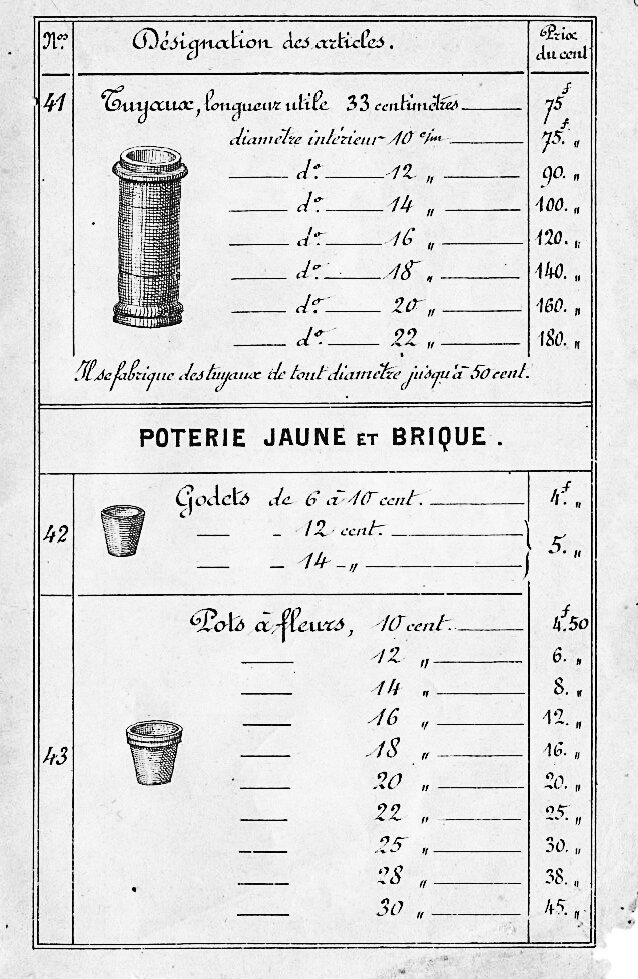 Nos Désignation des articles. Prix du cent
41 Tuyaux, longueur utile 33 centimètres 75f
diamètre intérieur 10 c/m 75.f „
do. 12 „ 90. „
do. 14 „ 100. „
do. 16 „ 120. „
do. 18 „ 140. „
do. 20 „ 160. „
do. 22 „ 180. „
Il se fabrique des tuyaux de tout diamètre jusqu'à 50 cent.
POTERIE JAUNE ET BRIQUE.
42 Godets de 6 à 10 cent. 4.f „
— - 12 cent.
— - 14 - „ 5. „
43 Pots à fleurs, 10 cent. 4.f50
— 12 „ 6. „
— 14 „ 8. „
— 16 „ 12. „
— 18 „ 16. „
— 20 „ 20. „
— 22 „ 25. „
— 25 „ 30. „
— 28 „ 38. „
— 30 „ 45. „